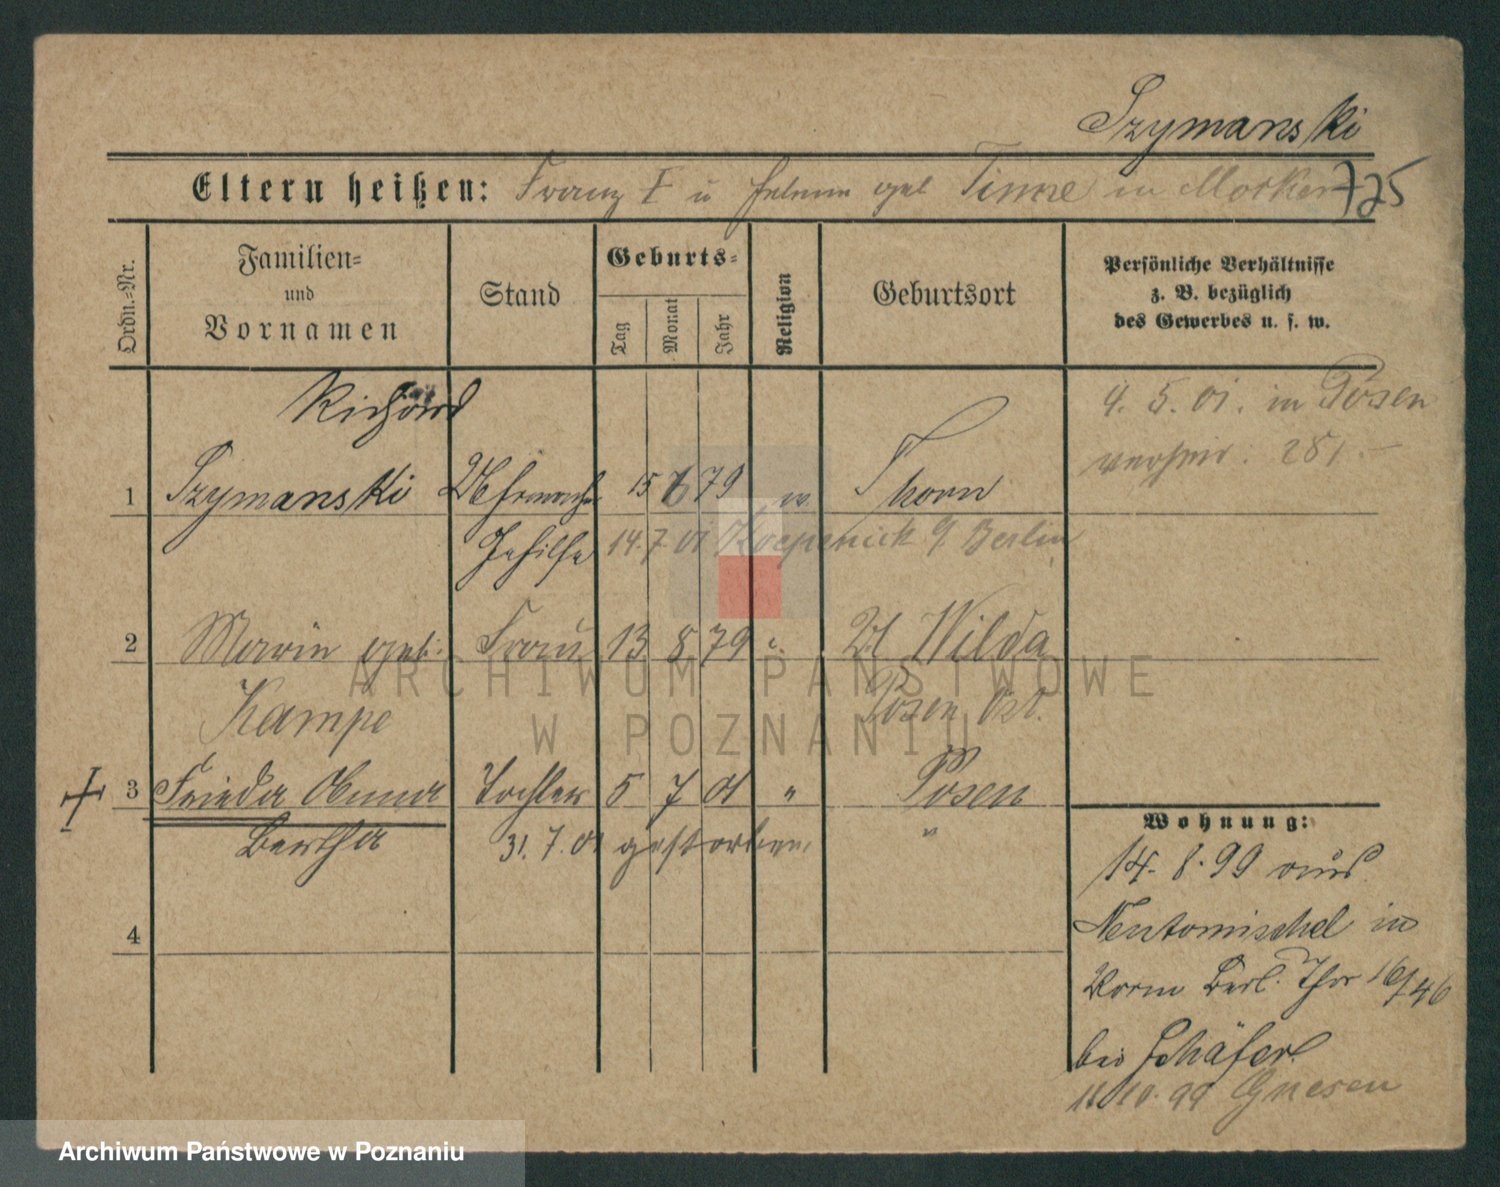 Szymanski
Eltern heißen: Franz I u Helene geb Timme in Mocker 725
Ordn.-Nr.
Familien- und Vornamen
Stand
Geburts-
Tag Monat Jahr
Religion
Geburtsort
Persönliche Verhältnisse
z. B. bezüglich
des Gewerbes u. s. w.
Richard
4. 5. 01. in Posen
verheir. 281.
1 Szymanski Uhrmacher 15 6 79 Thorn
Gehilfe 14. 7. 01 Koepenick b/ Berlin
2 Marie geb. Frau 13 8 79 Wilda
Kampe Posen Ost.
3 Frieda Anna Tochter 5 7 01 " Posen
Bertha 31. 7. 01 gestorben. "
Wohnung:
14. 8. 99 aus
Neutomischel in
Vorm Berl. Thor 16/46
bei Schäfer
11.10.99 Gnesen
4
ARCHIWUM PAŃSTWOWE
W POZNANIU
Archiwum Państwowe w Poznaniu